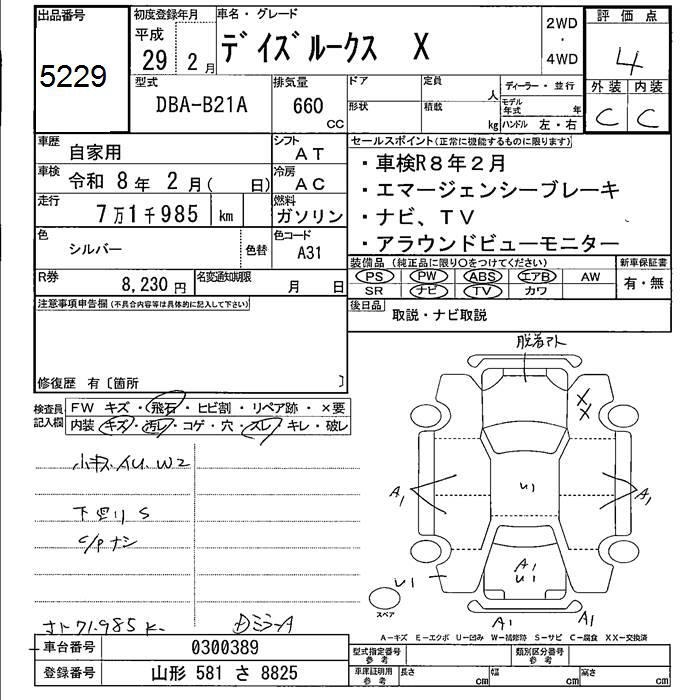 出品番号
5229
初度登録年月
平成
29年 2月
車名・グレード
デイズルークス X
2WD
・
4WD
評価点
4
外装 内装
C C
型式
DBA-B21A
排気量
660
CC
ドア
定員
人
形状
積載
kg
ディーラー・並行
モデル年式 年
ハンドル 左・右
車歴
自家用
シフト
AT
車検
令和 8年 2月( 日)
冷房
AC
走行
7万1千985 km
燃料
ガソリン
色
シルバー
色替
色コード
A31
R券
8,230円
名変通知期限
月 日
セールスポイント(正常に機能するものに限ります)
・車検R8年2月
・エマージェンシーブレーキ
・ナビ、TV
・アラウンドビューモニター
装備品(純正品に限り○をつけてください)
PS PW ABS エアB AW
SR ナビ TV カワ
新車保証書
有・無
後日品
取説・ナビ取説
注意事項申告欄(不具合内容等は具体的に記入して下さい)
修復歴 有〔箇所 〕
検査員記入欄
FW キズ・飛石・ヒビ割・リペア跡・×要
内装 キズ・汚レ・コゲ・穴・スレ・キレ・破レ
小キズ AU. W2
下回リ S
C/P ナシ
71.985 K
DミラーA
脱着アト
XX
A1
U1
A1
A1
U1
U1
A1
A1
スペア
A-キズ E-エクボ U-凹み W-補修跡 S-サビ C-腐食 XX-交換済
車台番号
0300389
登録番号
山形 581 さ 8825
型式指定番号
参考
類別区分番号
参考
車庫証明用
参考
長さ
cm
幅
cm
高さ
cm